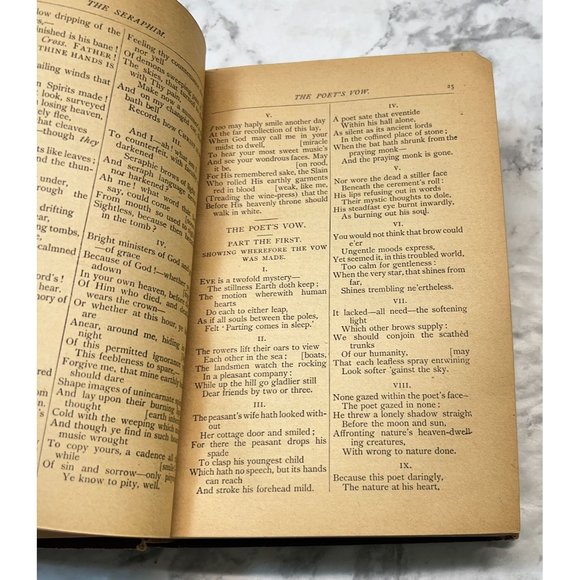 THE SERAPHIM.
ow dripping of the
nished is his bane!
Cross. FATHER!
THINE HANDS IS
ailing winds that
n Spirits made!
look, surveyed
losing heaven,
ely flee.
hat cleaves
—though they
ts like leaves;
and the thun-
under,
r drifting
ear,
ing tombs,
calmned
ord's!
mory of
Feeling the
Of demons sweeping
The skies, that
With Thy
And on my
bath
Make
Records how
III.
And I—ah!
To counterfeit, with
Seraphic brows of
And seraph language
Ah me! what
say, could word that
From mouth so used to
Sightless, because then
in the tomb?
IV.
Bright ministers of God and
—of grace
Because of God!—whether
adown
In your own heaven, before
Of Him who died, and
wears the crown—
Or whether at this hour, ye
are
Anear, around me, hiding
night
Of this permitted ignorance
This feebleness to spare,—
Forgive me, that mine earthly
dare
Shape images of unincarnate
And lay upon their burning
thought [earth
Cold with the weeping which
And though ye find in such
music wrought
To copy yours, a cadence all
while [smile
Of sin and sorrow—only pa
Ye know to pity, well.
THE POET'S VOW. 25
V.
I too may haply smile another day
At the far recollection of this lay,
When God may call me in your
midst to dwell, [miracle
To hear your most sweet music's
And see your wondrous faces. May
it be, [on rood,
For His remembered sake, the Slain
Who rolled His earthly garments
red in blood [weak, like me,
(Treading the wine-press) that the
Before His heavenly throne should
walk in white.
THE POET'S VOW.
PART THE FIRST.
SHOWING WHEREFORE THE VOW
WAS MADE.
I.
EVE is a twofold mystery—
The stillness Earth doth keep;
The motion wherewith human
hearts
Do each to either leap,
As if all souls between the poles,
Felt 'Parting comes in sleep.'
II.
The rowers lift their oars to view
Each other in the sea; [boats,
The landsmen watch the rocking
In a pleasant company:
While up the hill go gladlier still
Dear friends by two or three.
III.
The peasant's wife hath looked with-
out
Her cottage door and smiled;
For there the peasant drops his
spade
To clasp his youngest child
Which hath no speech, but its hands
can reach
And stroke his forehead mild.
IV.
A poet sate that eventide
Within his hall alone,
As silent as its ancient lords
In the coffined place of stone;
When the bat hath shrunk from the
praying monk—
And the praying monk is gone.
V.
Nor wore the dead a stiller face
Beneath the cerement's roll:
His lips refusing out in words
Their mystic thoughts to dole,
His steadfast eye burnt inwardly,
As burning out his soul.
VI.
You would not think that brow could
e'er
Ungentle moods express,
Yet seemed it, in this troubled world,
Too calm for gentleness:
When the very star, that shines from
far,
Shines trembling ne'ertheless.
VII.
It lacked—all need—the softening
light
Which other brows supply:
We should conjoin the scathèd
trunks
Of our humanity, [may
That each leafless spray entwining
Look softer 'gainst the sky.
VIII.
None gazed within the poet's face—
The poet gazed in none;
He threw a lonely shadow straight
Before the moon and sun,
Affronting nature's heaven-dwell-
ing creatures,
With wrong to nature done.
IX.
Because this poet daringly,
The nature at his heart,